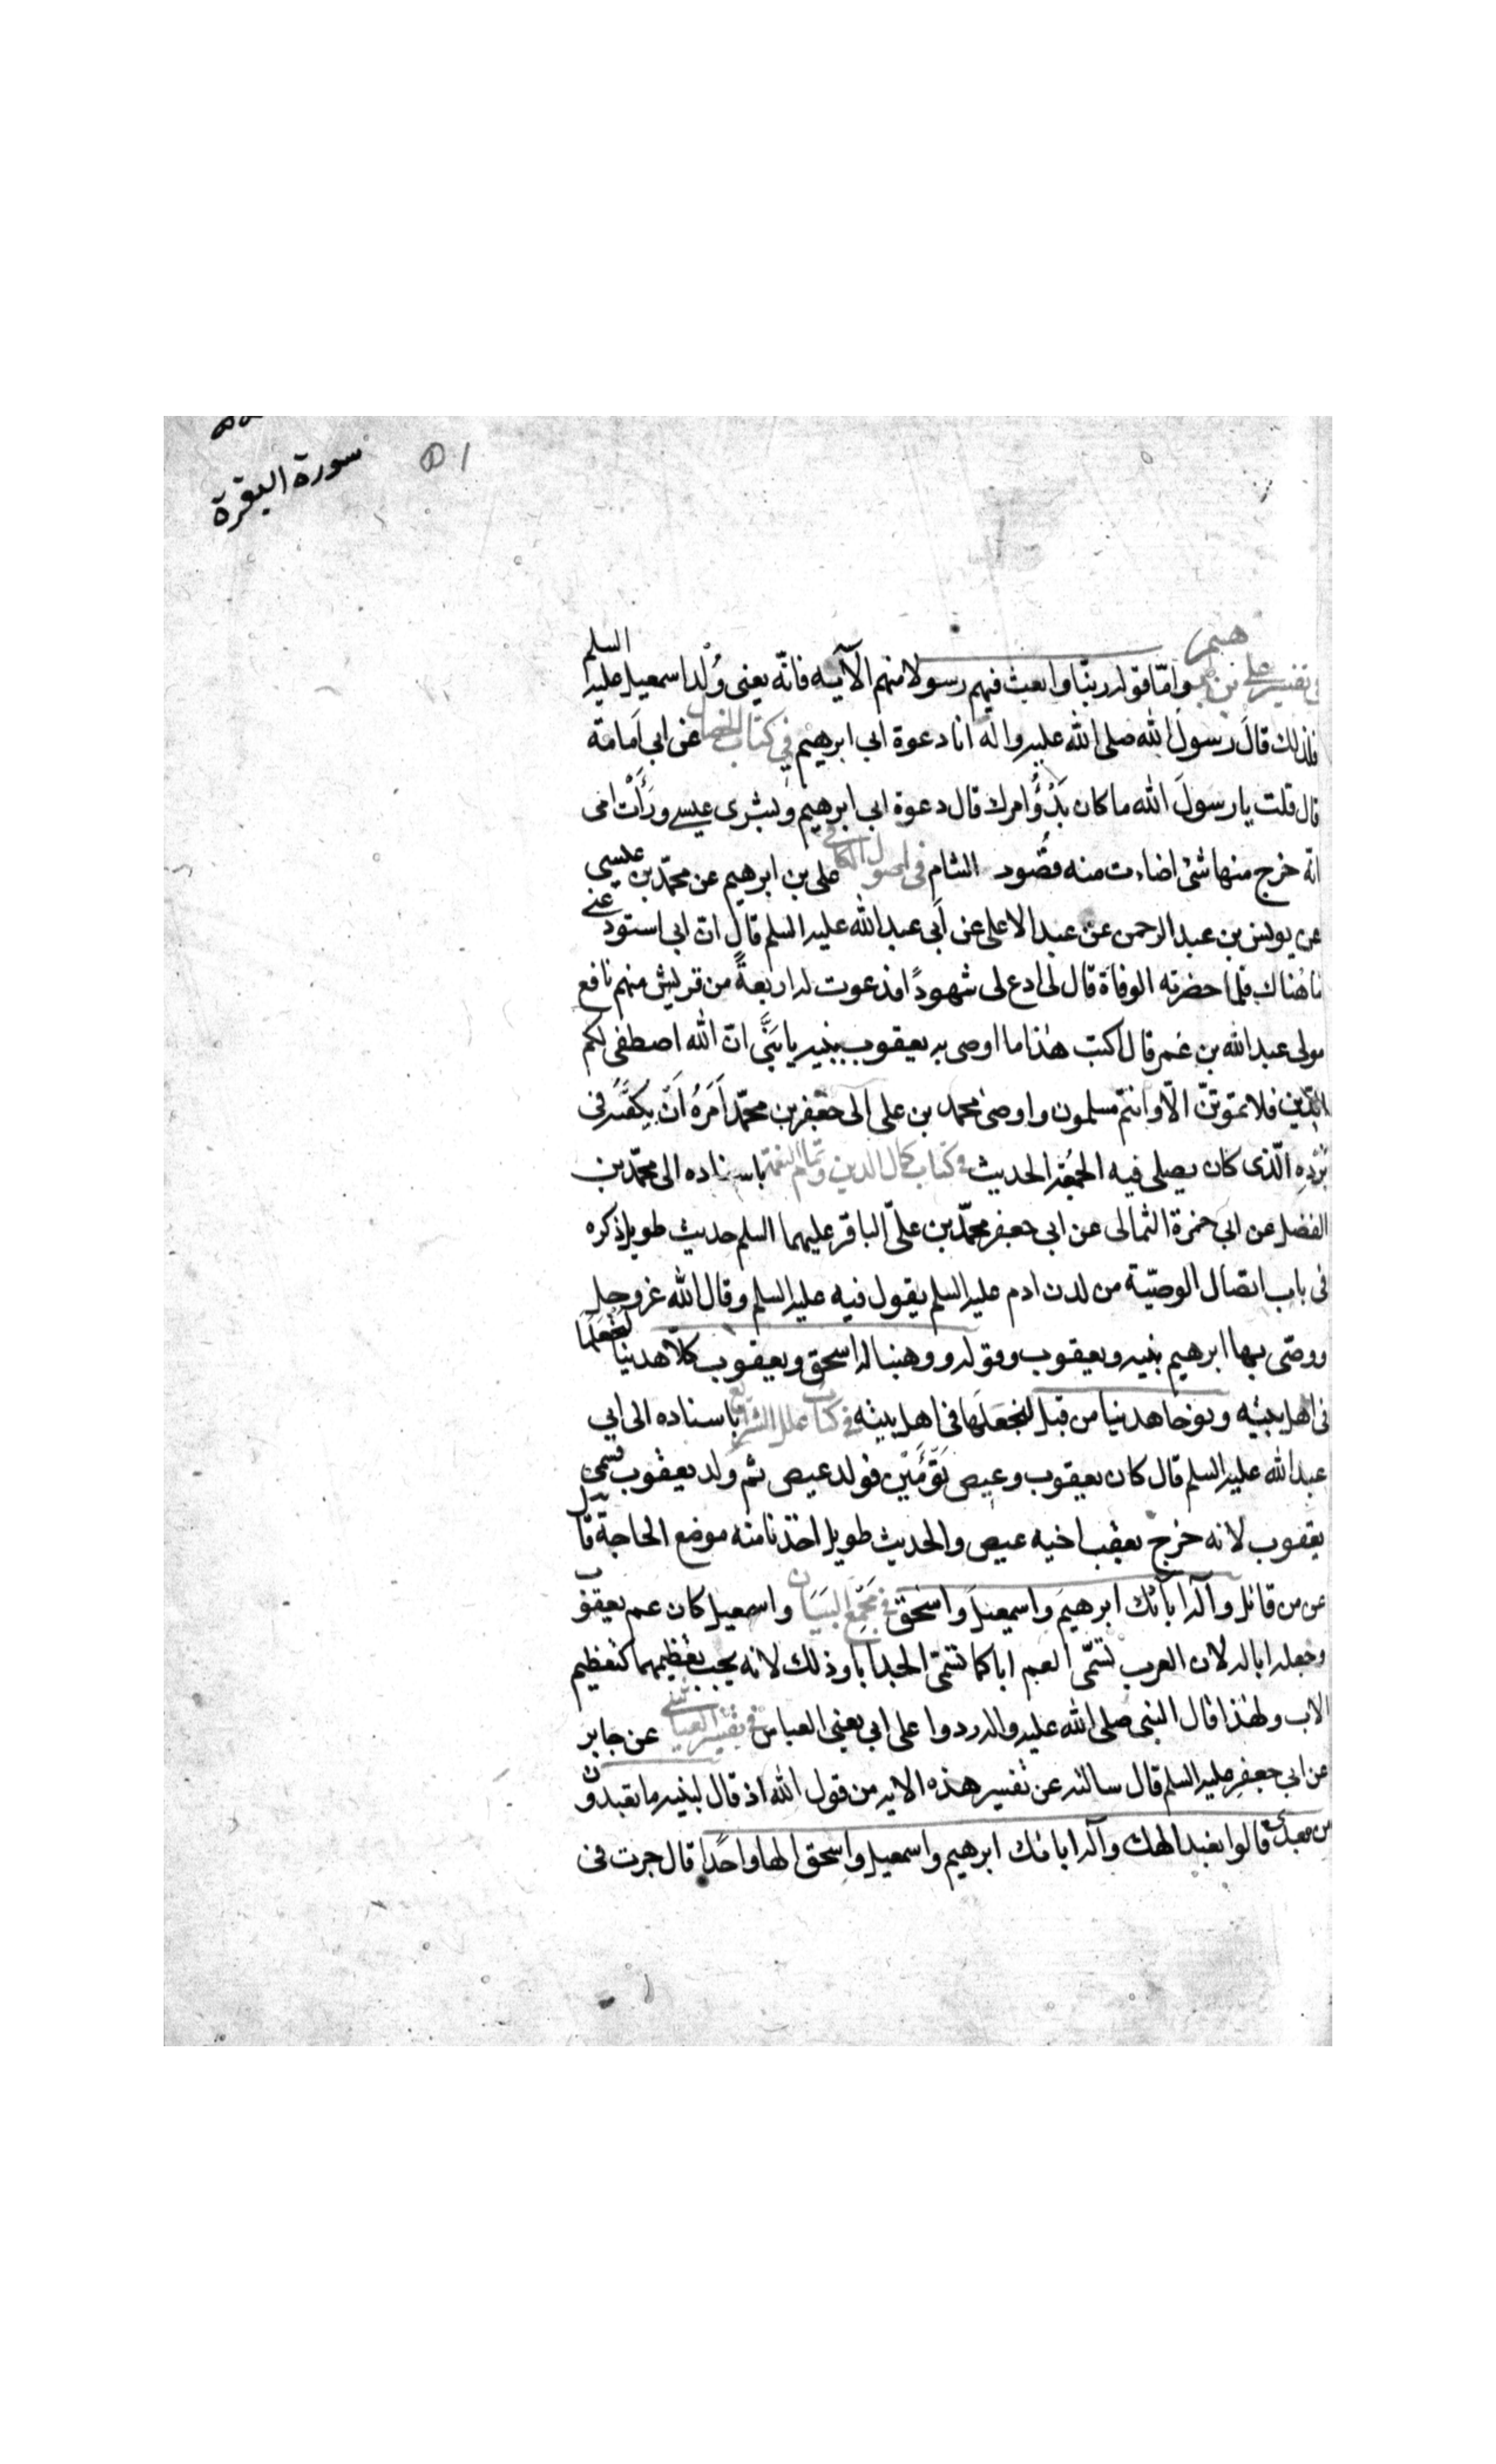 سورة البقرة
في تفسير علي بن ابرهيم واما قوله ربنا وابعث فيهم رسولا منهم الآية فانّه يعنى وُلْد اسمعيل عليه السلم
فلذلك قال رسول الله صلى الله عليه واله انا دعوة ابى ابرهيم في كتاب الخصال عن ابى اَمامة
قال قلت يا رسولَ الله ما كان بَدْؤُ امرك قال دعوة ابى ابرهيم وبشرى عيسى ورَأَتْ امى
انّه خرج منها شئ اضاءت منه قصُود الشام في اصول الكافي على بن ابرهيم عن محمّد بن عيسى
عن يونس بن عبد الرحمن عن عبد الاعلى عن اَبى عبد الله عليه السلم قال ان ابى استودعنى
ما هُناك فلما حضرته الوفاة قال لى ادع لى شهودًا فدعوت له اربعةً من قريش منهم نافع
مولى عبد الله بن عمر قال اكتب هذا ما اوصى به يعقوب بنيه يا بَنَّى انّ الله اصطفى لكم
الدّين فلا تموتنّ الّا وانتم مسلمون واوصى محمد بن على الى جعفر بن محمّد اَمَرَهُ اَنْ يكفّنه فى
بُرْدِهِ الّذى كان يصلى فيه الجمُعة الحديث في كتاب كمال الدين وتمام النعمة باسناده الى محمّد بن
الفضل عن ابى حمزة الثمالى عن ابى جعفر محمّد بن علىّ الباقر عليهما السلم حديث طويل ذكره
فى باب اتصال الوصيّة من لدن ادم عليه السلم يقول فيه عليه السلم وقال الله عز وجل
ووصّى بها ابرهيم بنيه ويعقوب وقوله ووهبنا له اسحق ويعقوب كلّا هدينا لنجعلها
فى اهل بيته ونوحا هدينا من قبل لنجعَلَها فى اهل بيته في كتاب علل الشرايع باسناده الى ابى
عبد الله عليه السلم قال كان يعقوب وعيص تَوْءَمَيْن فولد عيص ثم ولد يعقوب فسمى
يعقوب لانه خرج بعقب اخيه عيص والحديث طويل اخذنا منه موضع الحاجة قال
عز من قائل وآله ابائك ابرهيمَ واسمعيلَ واسحق في مَجْمَع البَيَان واسمعيل كان عم يعقوب
وجعله ابا له لان العرب تسمّى العم ابا كما تسمّى الجد ابا وذلك لانه يجب تعظيمهما كتعظيم
الاب ولهذا قال النبى صلى الله عليه واله ردوا على ابى يعنى العباس في تفسير العياشي عن جابر
عن ابى جعفرٍ عليه السلم قال سالته عن تفسير هذه الاية من قول الله اذ قال لبنيه ما تعبدون
من بعدى قالوا نعبد الهك وآله ابائك ابرهيم واسمعيل واسحق الها واحدًا قال جرت فى